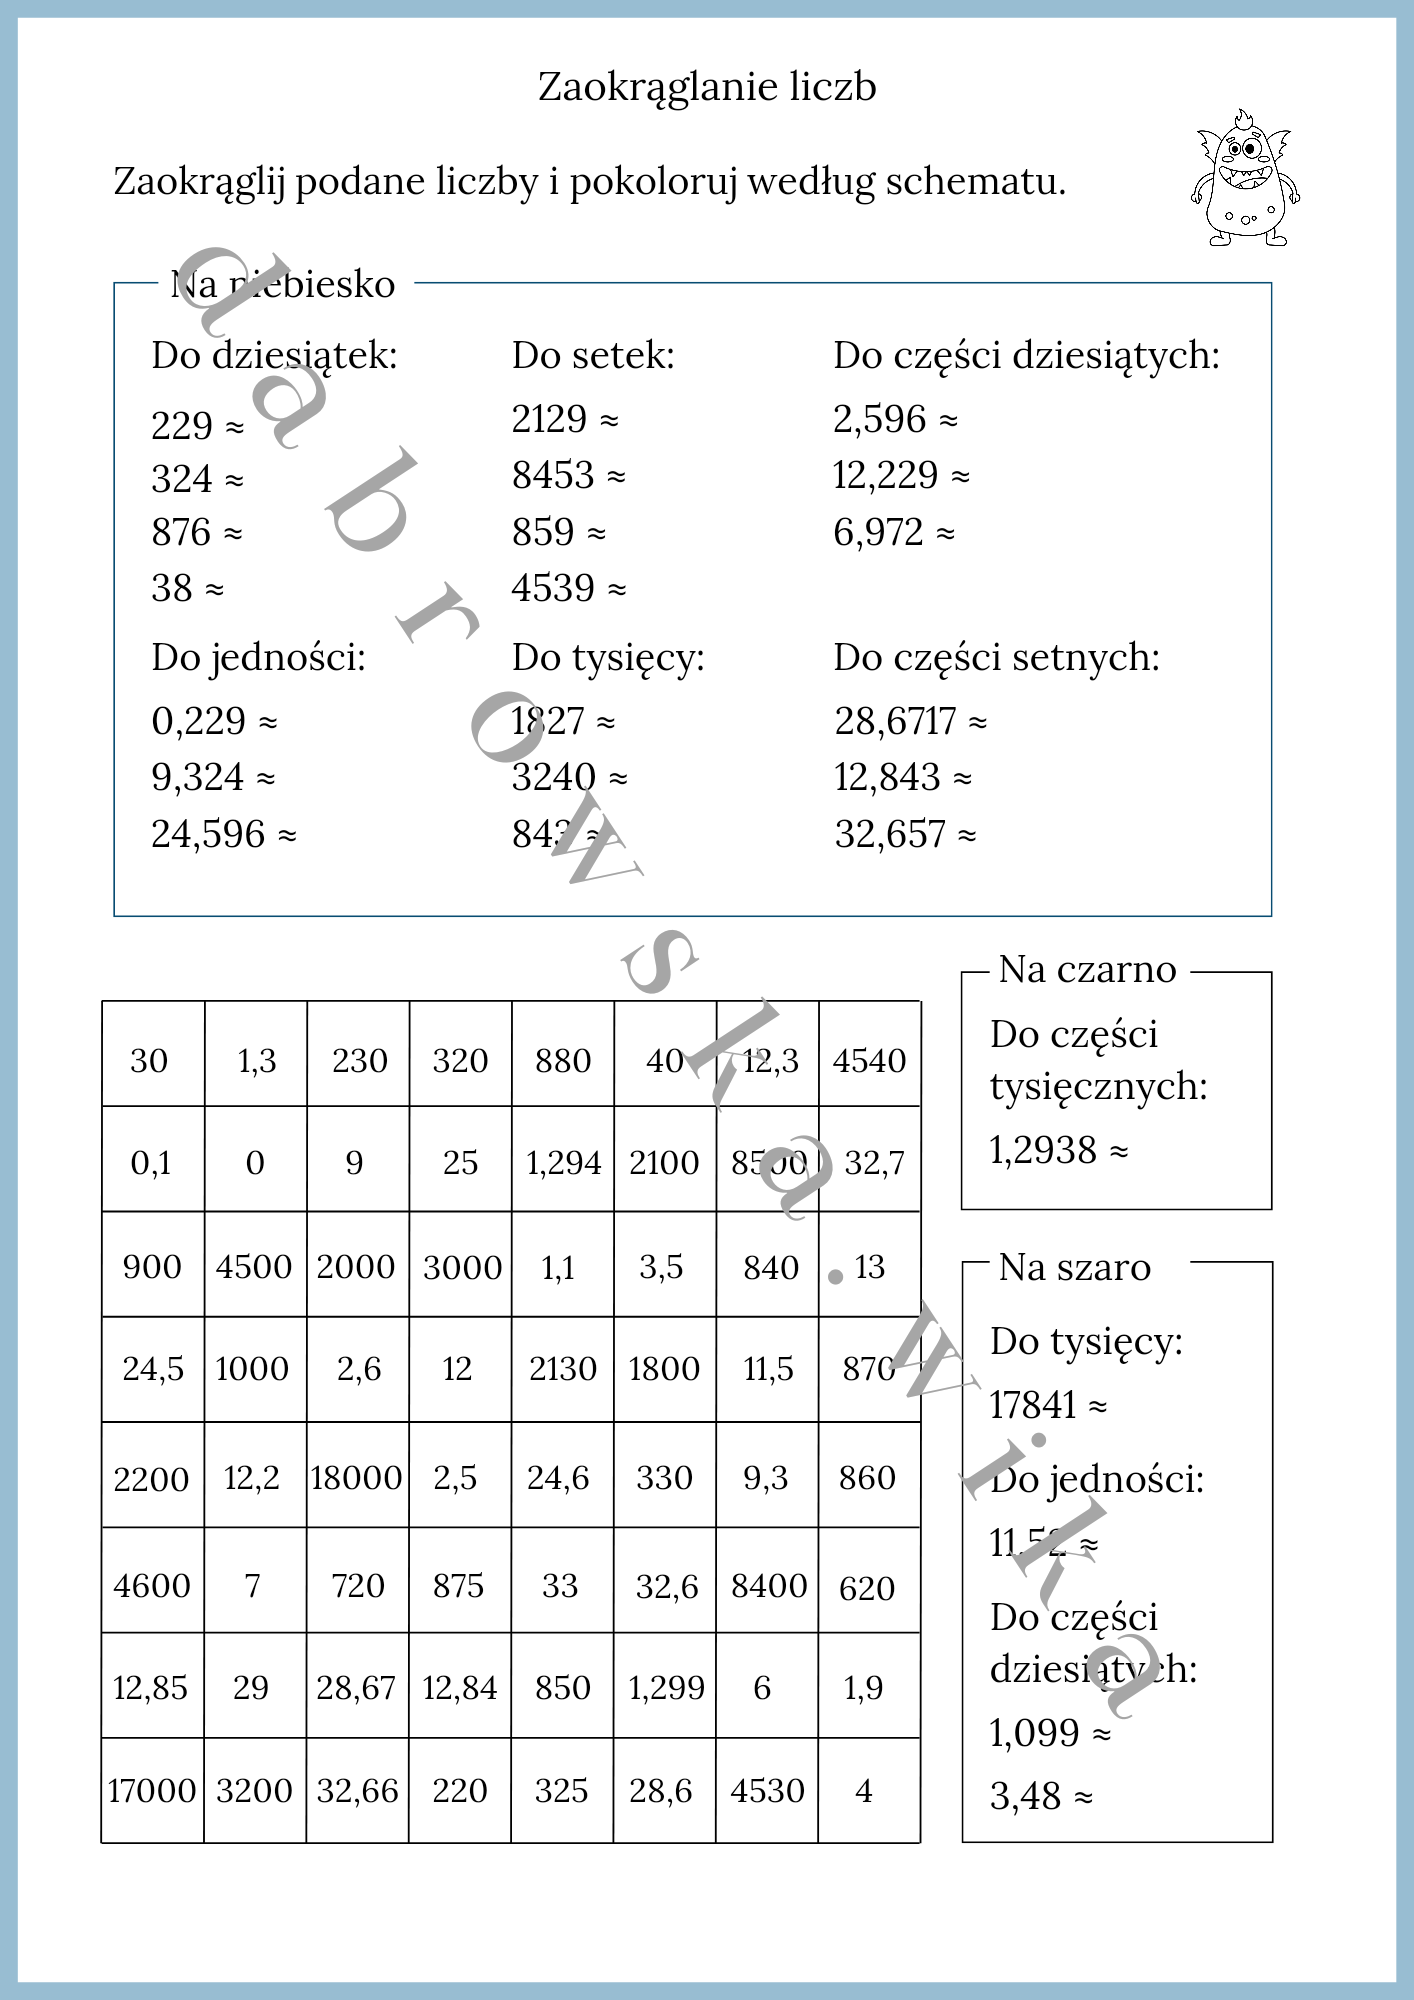 Zaokrąglanie liczb
Zaokrąglij podane liczby i pokoloruj według schematu.
Na niebiesko
Do dziesiątek:
229 ≈
324 ≈
876 ≈
38 ≈
Do setek:
2129 ≈
8453 ≈
859 ≈
4539 ≈
Do części dziesiątych:
2,596 ≈
12,229 ≈
6,972 ≈
Do jedności:
0,229 ≈
9,324 ≈
24,596 ≈
Do tysięcy:
1827 ≈
3240 ≈
843 ≈
Do części setnych:
28,6717 ≈
12,843 ≈
32,657 ≈
30 1,3 230 320 880 40 12,3 4540
0,1 0 9 25 1,294 2100 8500 32,7
900 4500 2000 3000 1,1 3,5 840 13
24,5 1000 2,6 12 2130 1800 11,5 870
2200 12,2 18000 2,5 24,6 330 9,3 860
4600 7 720 875 33 32,6 8400 620
12,85 29 28,67 12,84 850 1,299 6 1,9
17000 3200 32,66 220 325 28,6 4530 4
Na czarno
Do części
tysięcznych:
1,2938 ≈
Na szaro
Do tysięcy:
17841 ≈
Do jedności:
11,52 ≈
Do części
dziesiątych:
1,099 ≈
3,48 ≈
dabrowska.wika